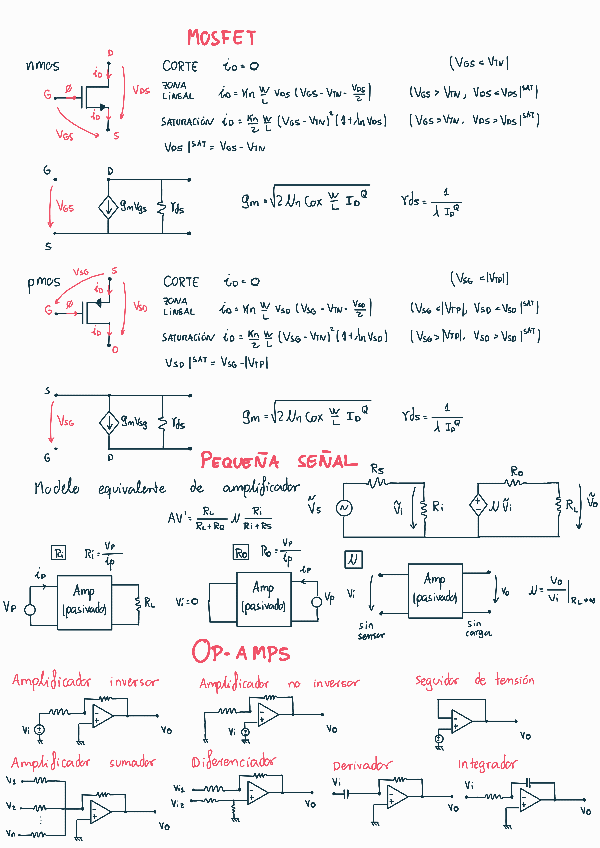 MOSFET
nmos
D
iD
G
ø
VDS
VGS
iD
S
CORTE iD = 0 (VGS < VTN)
ZONA LINEAL iD = Kn W/L VDS (VGS - VTN - VDS/2) (VGS > VTN, VDS < VDS|SAT)
SATURACIÓN iD = Kn/2 W/L (VGS - VTN)² (1 + λn VDS) (VGS > VTN, VDS > VDS|SAT)
VDS|SAT = VGS - VTN
G D
VGS gmVgs rds
S
gm = √2 μn Cox W/L ID^Q rds = 1/(λ ID^Q)
pmos
VSG
S
iD
G
ø
VSD
iD
D
CORTE iD = 0 (VSG < |VTP|)
ZONA LINEAL iD = Kn W/L VSD (VSG - VTN - VSD/2) (VSG < |VTP|, VSD < VSD|SAT)
SATURACIÓN iD = Kn/2 W/L (VSG - VTN)² (1 + λn VSD) (VSG > |VTP|, VSD > VSD|SAT)
VSD|SAT = VSG - |VTP|
S
VSG gmVsg rds
G D
gm = √2 μn Cox W/L ID^Q rds = 1/(λ ID^Q)
PEQUEÑA SEÑAL
Modelo equivalente de amplificador
AV' = RL/(RL+RO) μ Ri/(Ri+RS)
RS RO
ṽs ṽi Ri μ ṽi RL ṽo
Ri Ri = VP/iP
iP
VP
Amp (pasivado)
RL
RO RO = VP/iP
Vi = 0
Amp (pasivado)
iP
VP
μ
Vi
Amp (pasivado)
Vo
sin sensor
sin carga
μ = VO/Vi |RL→∞
OP-AMPS
Amplificador inversor
Vi
VO
Amplificador no inversor
Vi
VO
Seguidor de tensión
VO
Amplificador sumador
V1
V2
Vn
VO
Diferenciador
Vi1
Vi2
VO
Derivador
Vi
VO
Integrador
Vi
VO